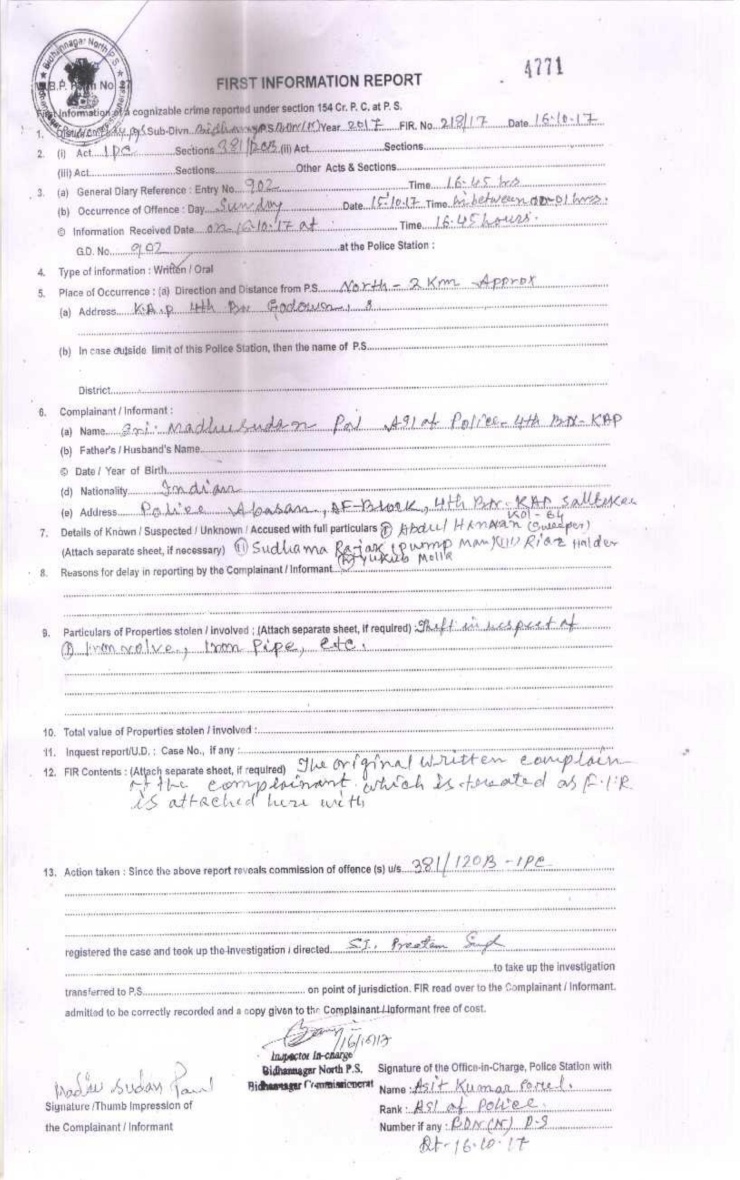 4771
Bidhannagar North P.S.
W.B.P. Form No
FIRST INFORMATION REPORT
First Information of a cognizable crime reported under section 154 Cr. P. C. at P. S.
1. Sub-Divn. P.S. BDN(N) Year 2017 FIR. No. 218/17 Date 16.10.17
2. (i) Act IPC Sections 381/120B (ii) Act Sections
(iii) Act Sections Other Acts & Sections
3. (a) General Diary Reference : Entry No. 902 Time 16.45 hrs
(b) Occurrence of Offence : Day Sunday Date 15.10.17 Time in between 00-01 hrs.
© Information Received Date on 16.10.17 at Time 16.45 hours.
G.D. No. 902 at the Police Station :
4. Type of information : Written / Oral
5. Place of Occurrence : (a) Direction and Distance from P.S. North - 2 Km Approx
(a) Address K.A.P 4th Bn Godown,
(b) In case outside limit of this Police Station, then the name of P.S.
District
6. Complainant / Informant :
(a) Name Sri Madhusudan Pal ASI of Police - 4th BN - KAP
(b) Father's / Husband's Name
© Date / Year of Birth
(d) Nationality Indian
(e) Address Police Abasan, AF-Block, 4th Bn. KAP Saltlake
Kol - 64
7. Details of Known / Suspected / Unknown / Accused with full particulars (i) Abdul Hannan (Sweeper)
(Attach separate sheet, if necessary) (ii) Sudhama Rajak (Pump Man) (iii) Riaz Halder
(iv) Yukub Molla
8. Reasons for delay in reporting by the Complainant / Informant
9. Particulars of Properties stolen / involved : (Attach separate sheet, if required) Theft in respect of
(i) Iron valve, Iron Pipe, etc.
10. Total value of Properties stolen / involved :
11. Inquest report/U.D. : Case No., if any :
12. FIR Contents : (Attach separate sheet, if required) The original written complain
of the complainant which is treated as F.I.R
is attached here with
13. Action taken : Since the above report reveals commission of offence (s) u/s 381/120B - IPC
registered the case and took up the investigation / directed S.I. Preetam
to take up the investigation
transferred to P.S. on point of jurisdiction. FIR read over to the Complainant / Informant.
admitted to be correctly recorded and a copy given to the Complainant / Informant free of cost.
16/10/17
Inspector In-charge
Bidhannagar North P.S.
Bidhannagar Commissionerat
Signature of the Office-in-Charge, Police Station with
Madhu Sudan Paul
Name : Asit Kumar Porel.
Signature /Thumb Impression of
Rank : ASI of Police.
the Complainant / Informant
Number if any : BDN(N) P.S
Dt - 16.10.17